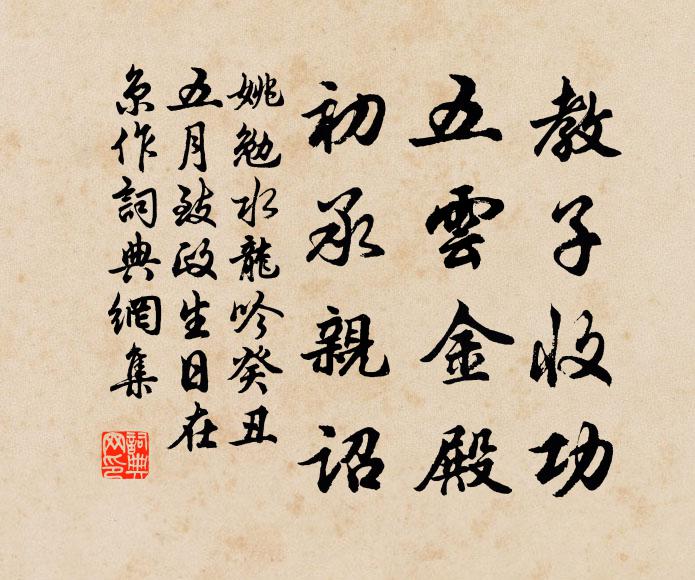 教子收功
五雲金殿
初承親詔
姚勉水龍吟癸丑
五月致政生日在
京作詞典網集
詞典网印